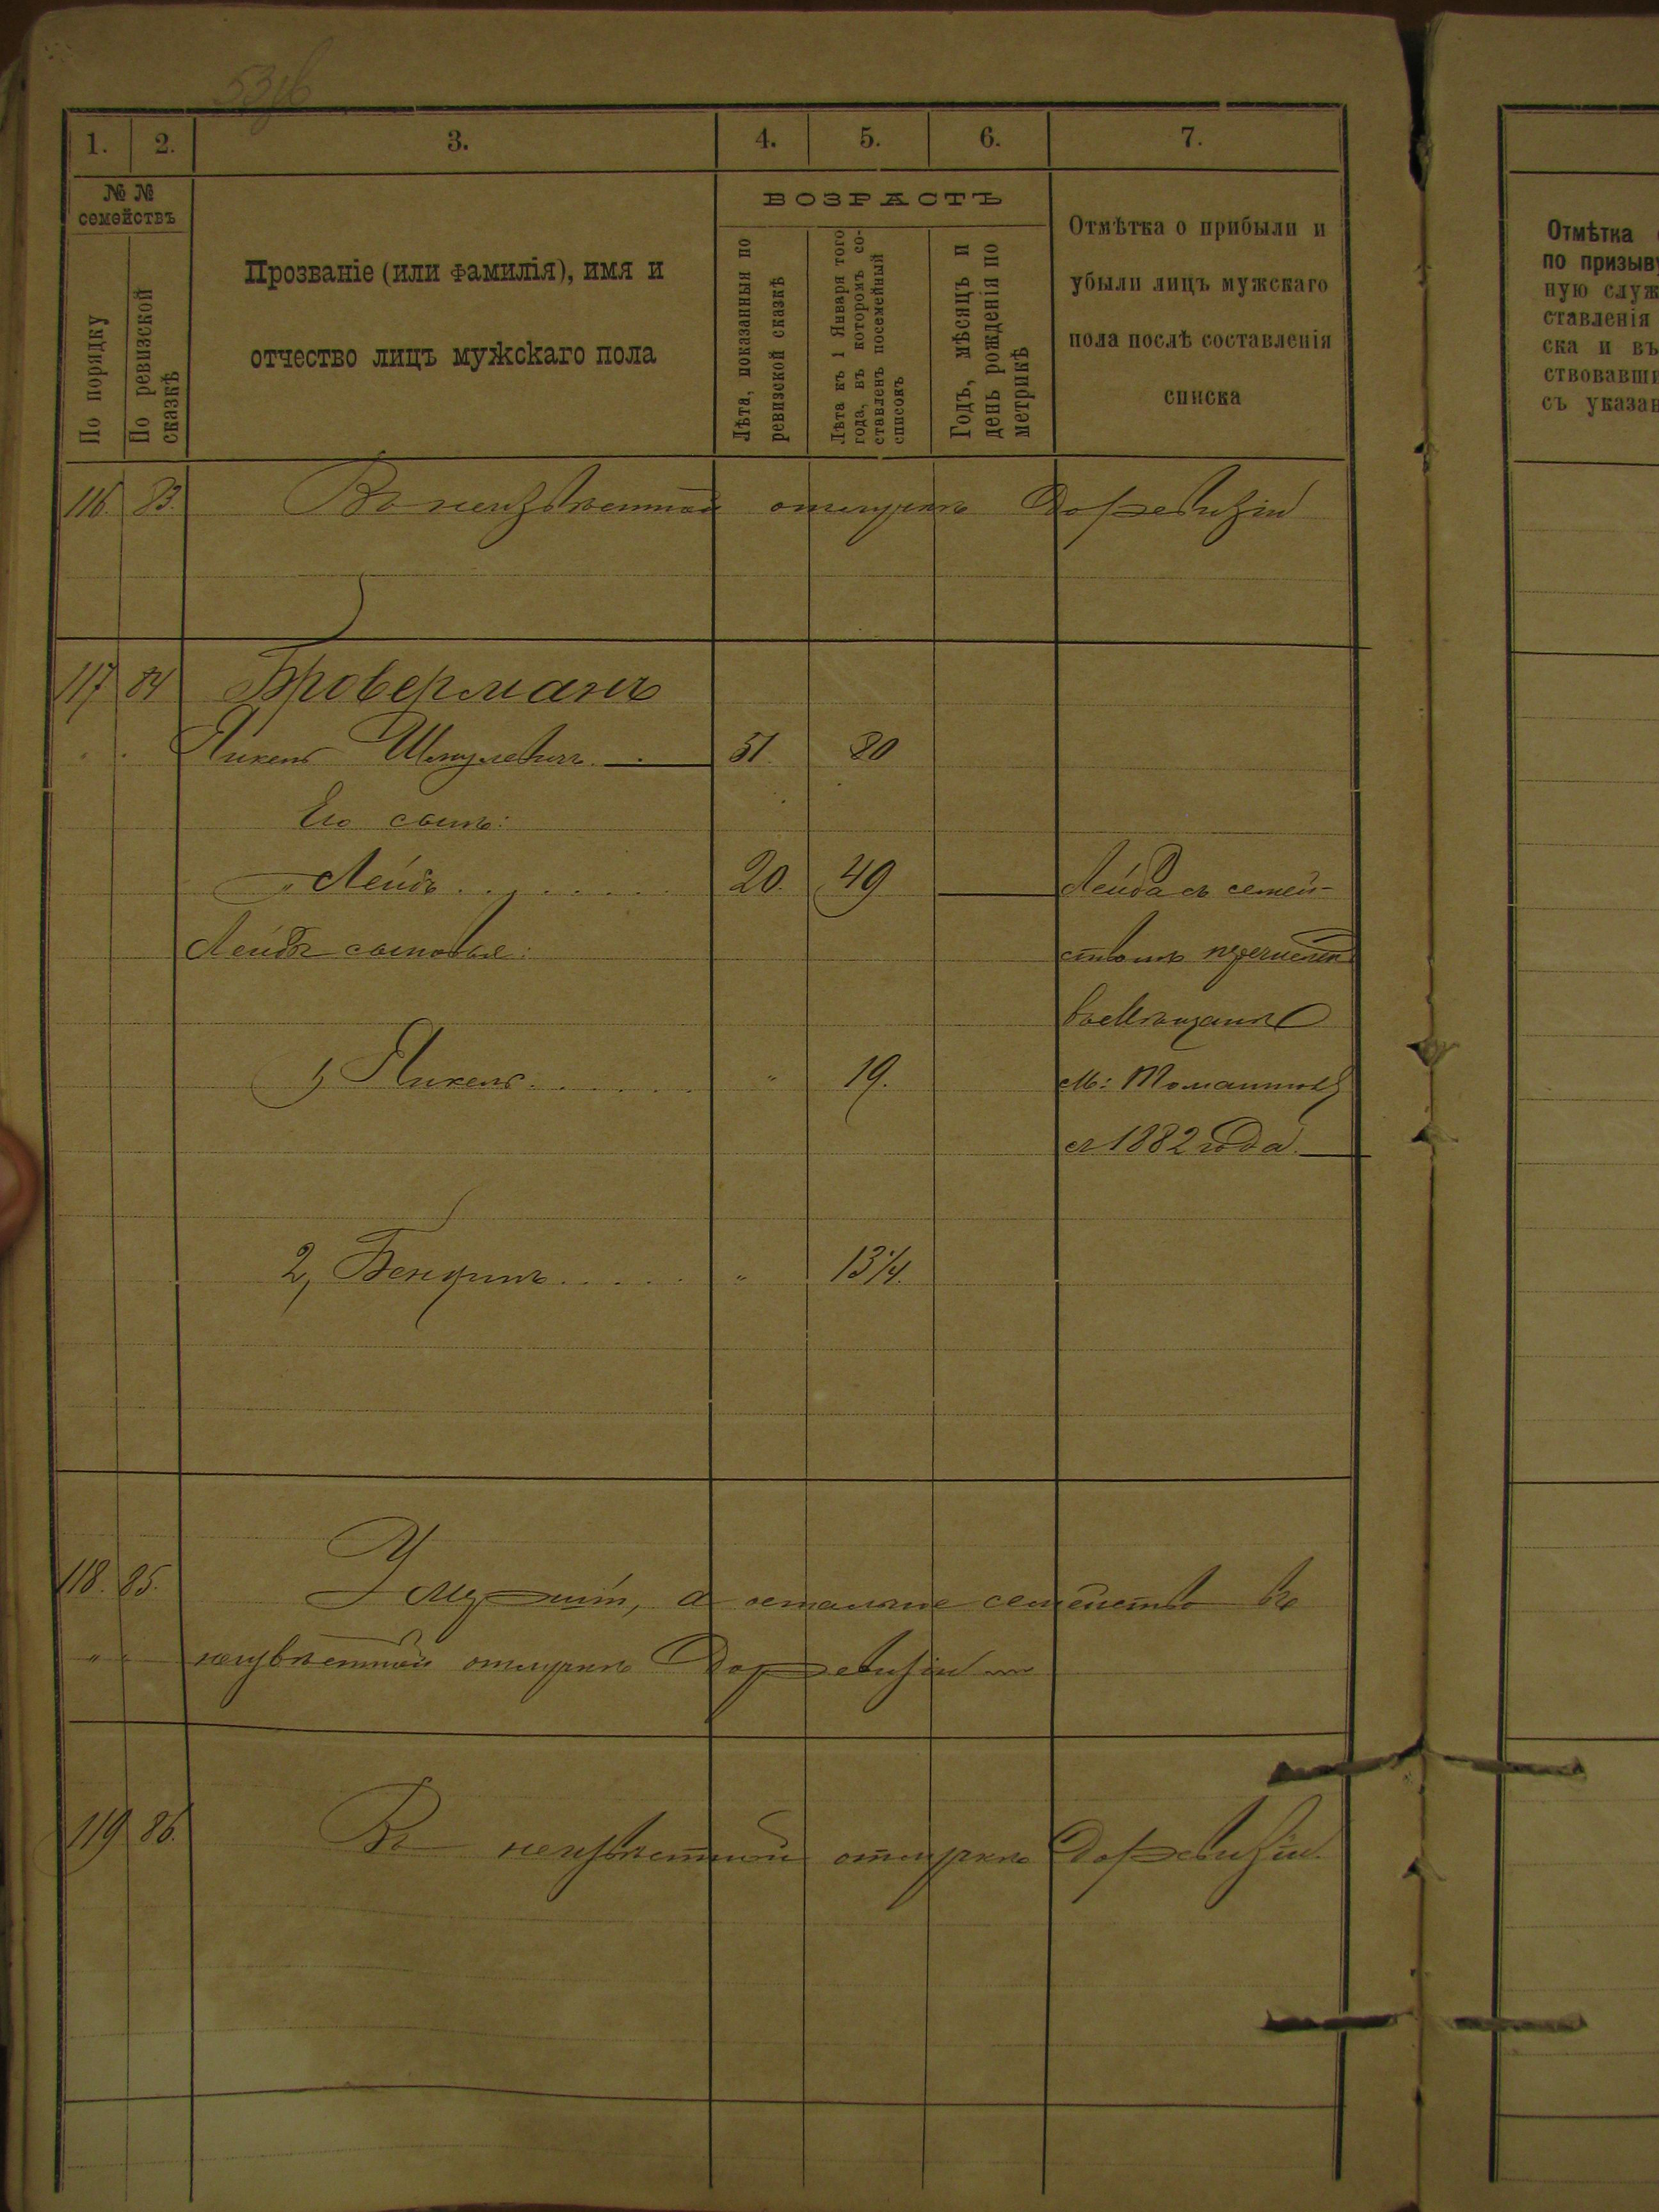 1. 2. 3. 4. 5. 6. 7.
№ №
семействъ
По порядку
По ревизской
сказкѣ
Прозваніе (или фамилія), имя и
отчество лицъ мужскаго пола
ВОЗРАСТЪ
Лѣта, показанныя по
ревизской сказкѣ
Лѣта къ 1 Января того
года, въ которомъ со-
ставленъ посемейный
списокъ
Годъ, мѣсяцъ и
день рожденія по
метрикѣ
Отмѣтка о прибыли и
убыли лицъ мужскаго
пола послѣ составленія
списка
Отмѣтка
по призыву
ную служ
ставленія
ска и въ
ствовавши
съ указан
116. 83. Въ неизвѣстной отлучкѣ до ревизіи
117 84 Броверманъ
Янкель Шмулевичъ 51. 80
Его сынъ:
Лейба 20. 49 Лейба съ семей-
Лейбы сыновья: ствомъ перечисленъ
въ Мѣщане
1, Янкель " 19. М:
съ 1882 года.
2, " 13 1/4.
118. 85. Умершій, а остальное семейство въ
" " неизвѣстной отлучкѣ до ревизіи
119 86. Въ неизвѣстной отлучкѣ до ревизіи.